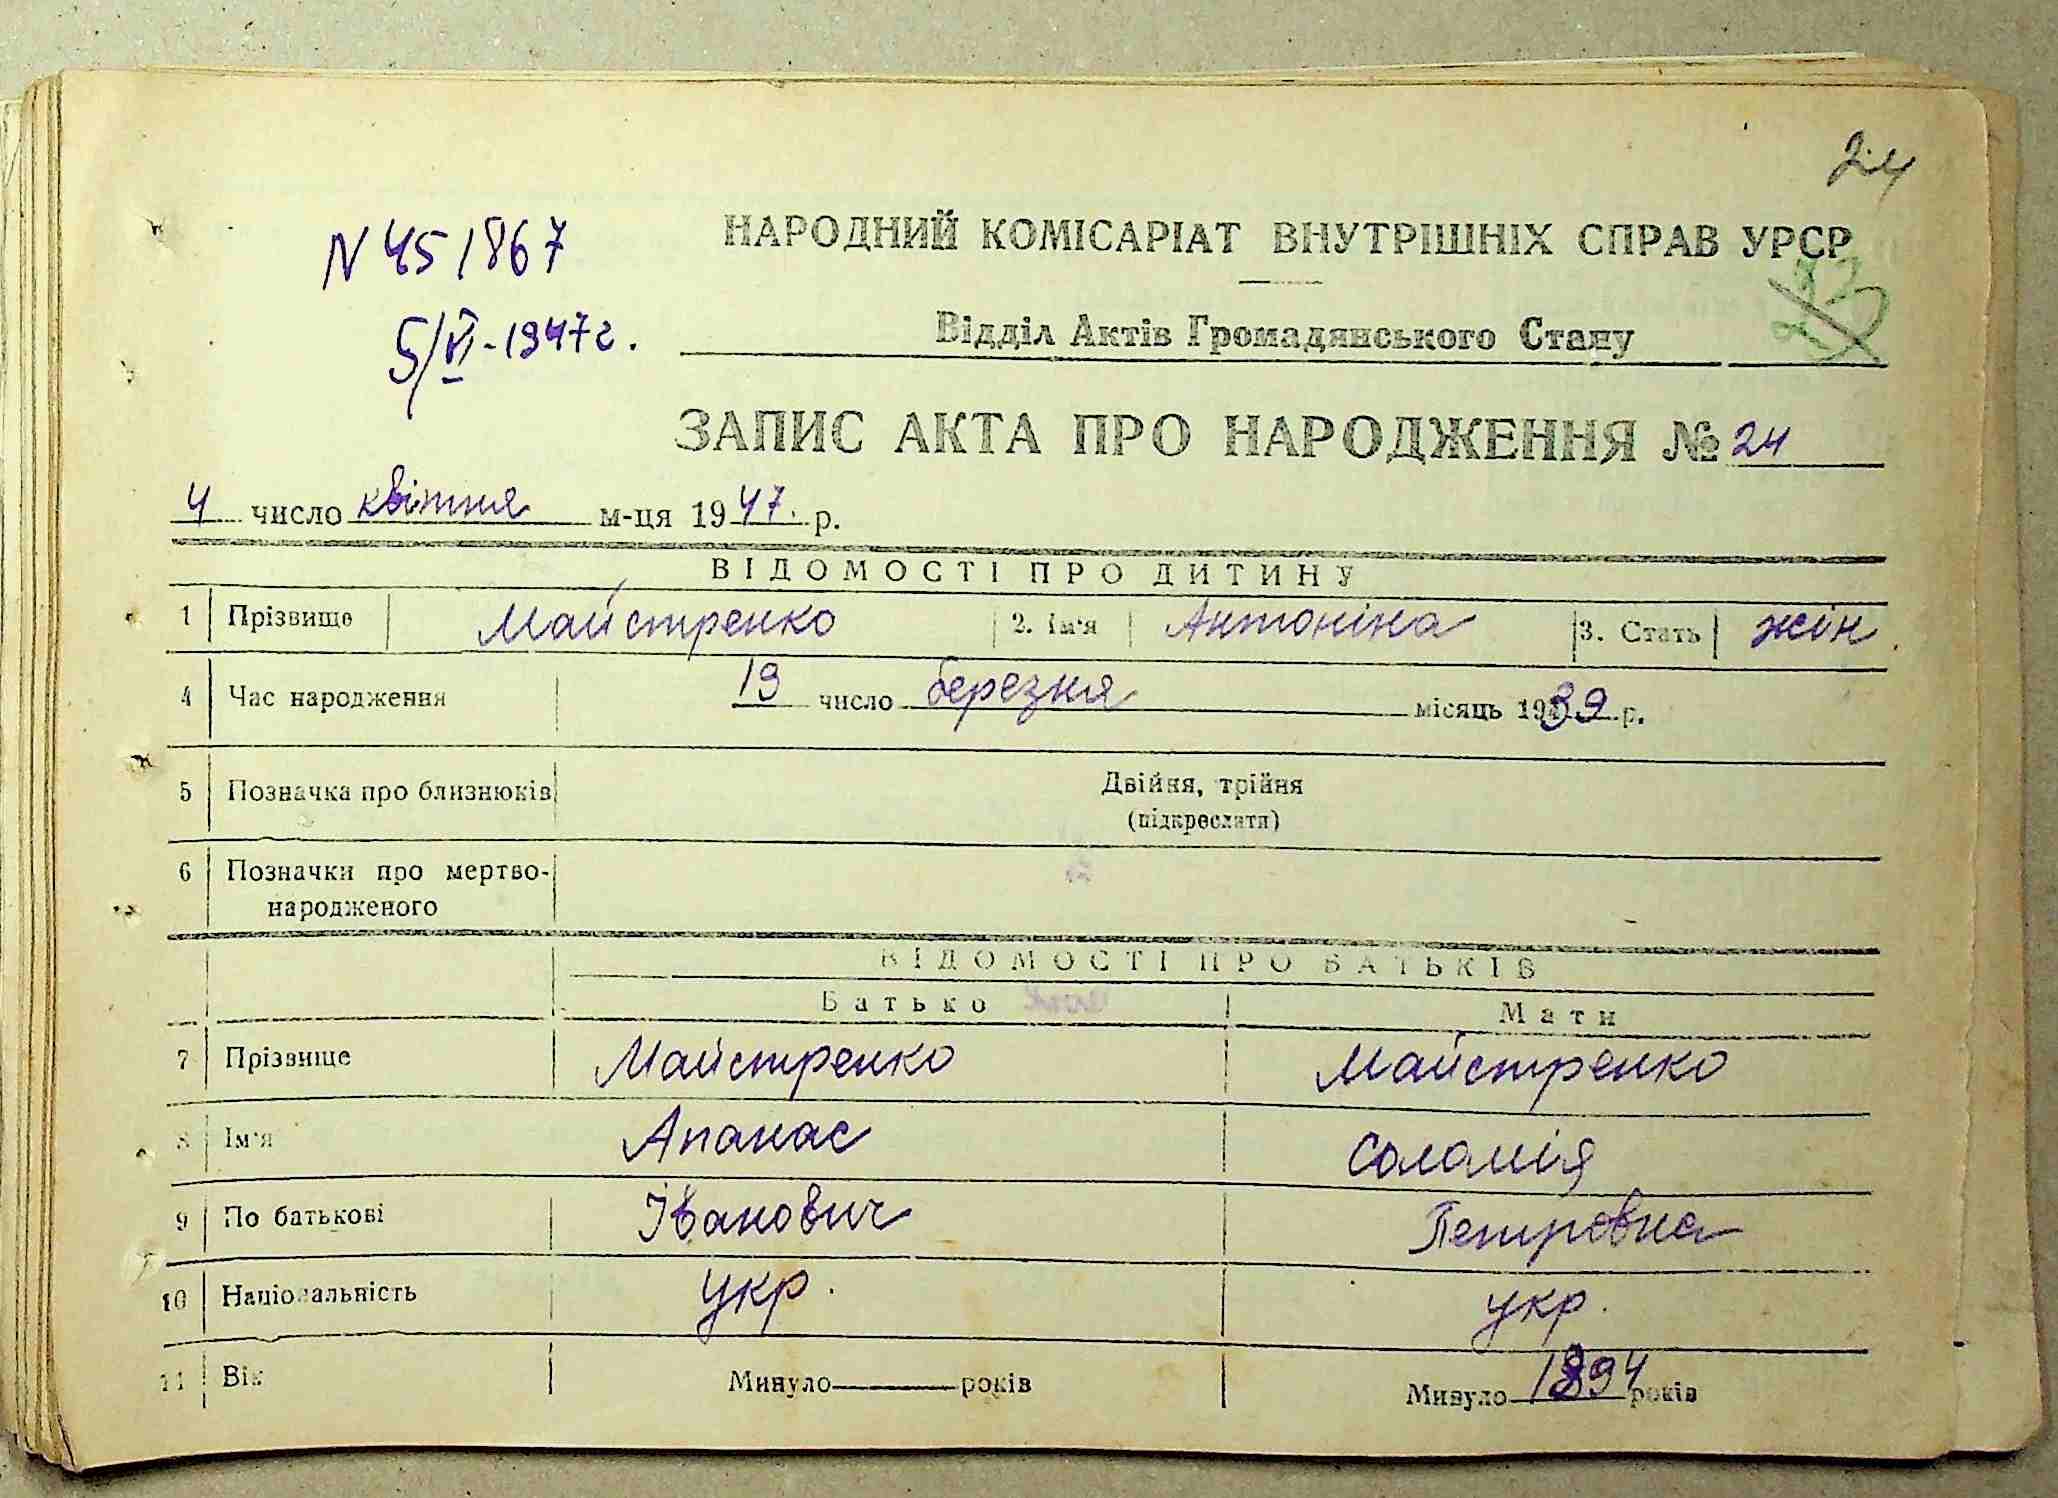 24
N 451867
НАРОДНИЙ КОМІСАРІАТ ВНУТРІШНІХ СПРАВ УРСР
5/VI-1947г.
Відділ Актів Громадянського Стану
ЗАПИС АКТА ПРО НАРОДЖЕННЯ № 24
4 число квітня м-ця 1947. р.
ВІДОМОСТІ ПРО ДИТИНУ
1 Прізвище Майстренко 2. Ім'я Антоніна 3. Стать жін.
4 Час народження 19 число березня місяць 1939 р.
5 Позначка про близнюків Двійня, трійня
(підкреслити)
6 Позначки про мертво-
народженого
ВІДОМОСТІ ПРО БАТЬКІВ
Батько Мати
7 Прізвище Майстренко Майстренко
8 Ім'я Апанас Соломія
9 По батькові Іванович Петровна
10 Національність укр. укр.
11 Вік Минуло років Минуло 1894 років